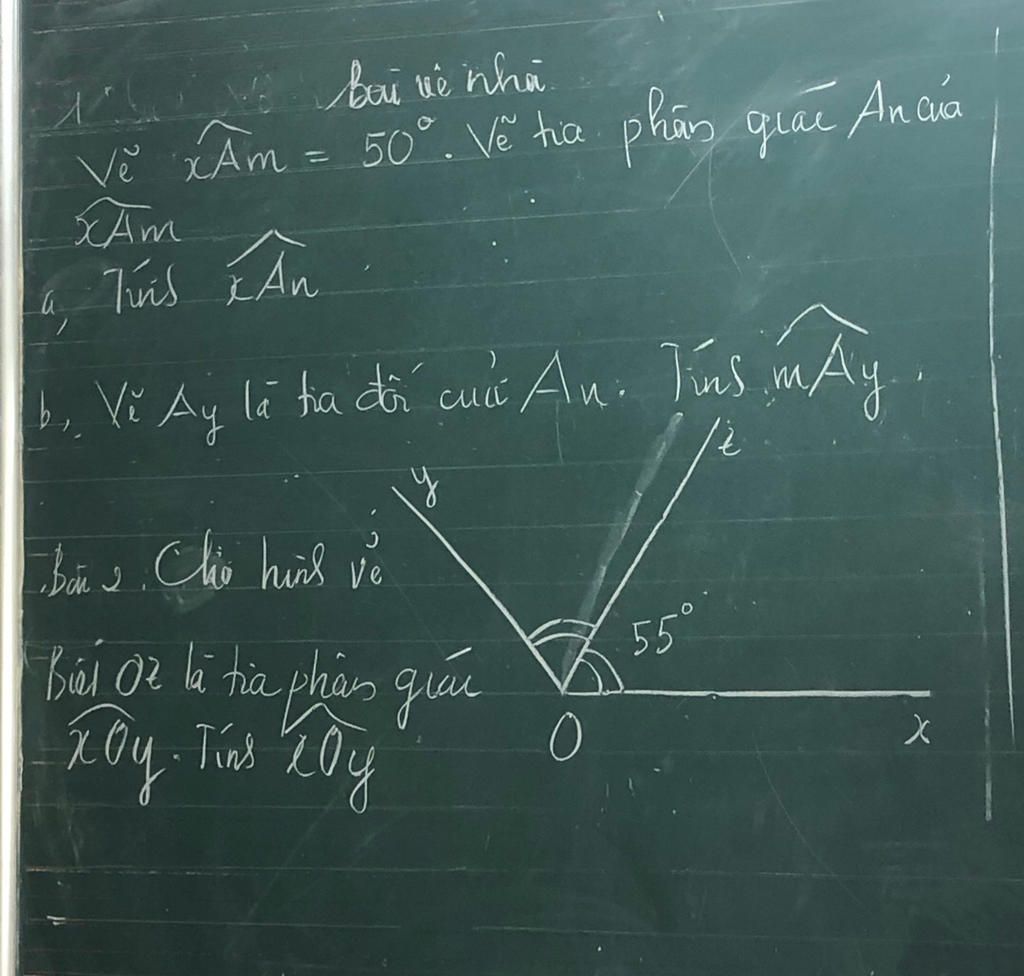 Bài về nhà
1
Vẽ xÂm = 50°. Vẽ tia phân giác An của
xÂm
a, Tính xÂn
b, Vẽ Ay là tia đối của An. Tính mÂy.
y
z
Bài 2. Cho hình vẽ
55°
Biết Oz là tia phân giác
xÔy. Tính zÔy
O
x